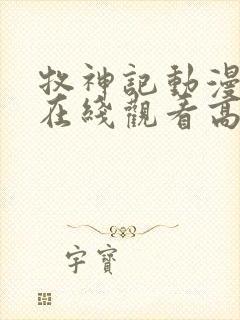 牧神記動漫
在綫觀看高
字寶